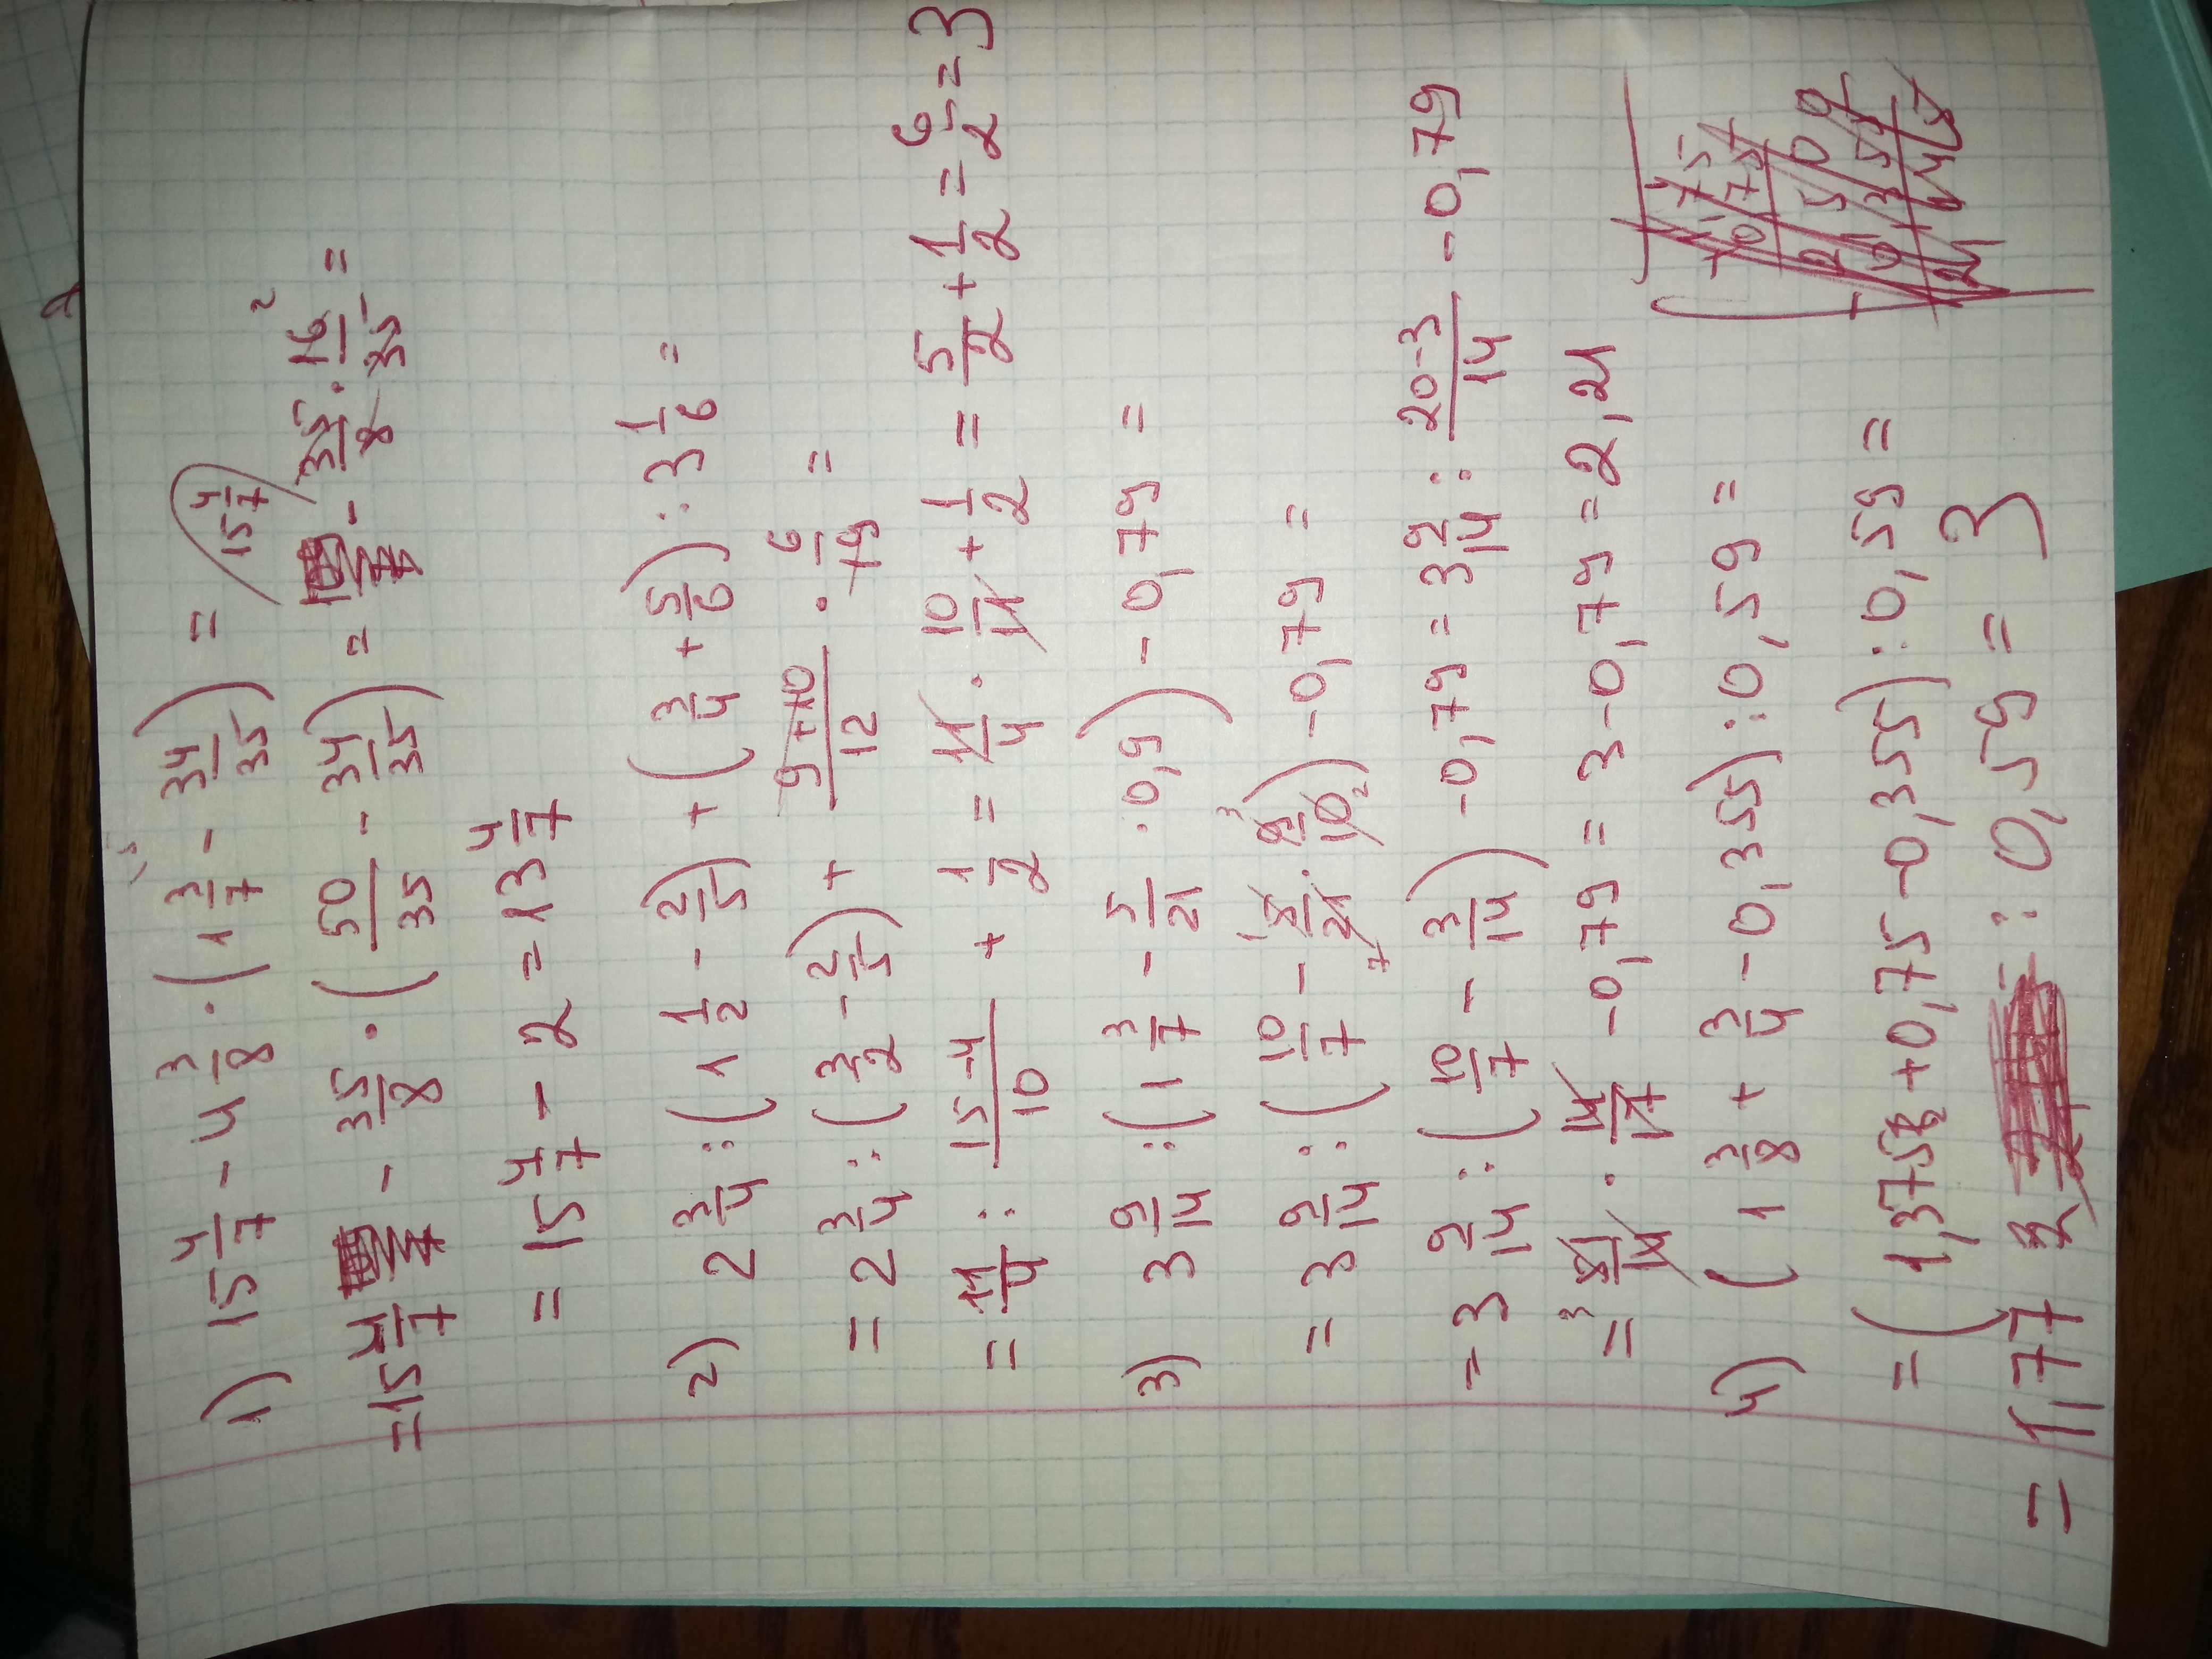 1) 15 4/7 - 4 3/8 · (1 3/7 - 34/35) = 15 4/7
= 15 4/7 - 35/8 · (50/35 - 34/35) = - 35/8 · 16/35 =
= 15 4/7 - 2 = 13 4/7
2) 2 3/4 : (1 1/2 - 2/5) + (3/4 + 5/6) : 3 1/6 =
= 2 3/4 : (3/2 - 2/5) + 9+10/12 · 6/19 =
= 11/4 : 15-4/10 + 1/2 = 11/4 · 10/11 + 1/2 = 5/2 + 1/2 = 6/2 = 3
3) 3 9/14 : (1 3/7 - 5/21 · 0,9) - 0,79 =
= 3 9/14 : (10/7 - 5/21 · 9/10) - 0,79 =
- 3 9/14 : (10/7 - 3/14) - 0,79 = 3 9/14 : 20-3/14 - 0,79
= 51/14 · 14/17 - 0,79 = 3 - 0,79 = 2,21
4) (1 3/8 + 3/4 - 0,355) : 0,59 =
= (1,375 + 0,75 - 0,355) : 0,59 =
= 1,77 : 0,59 = 3